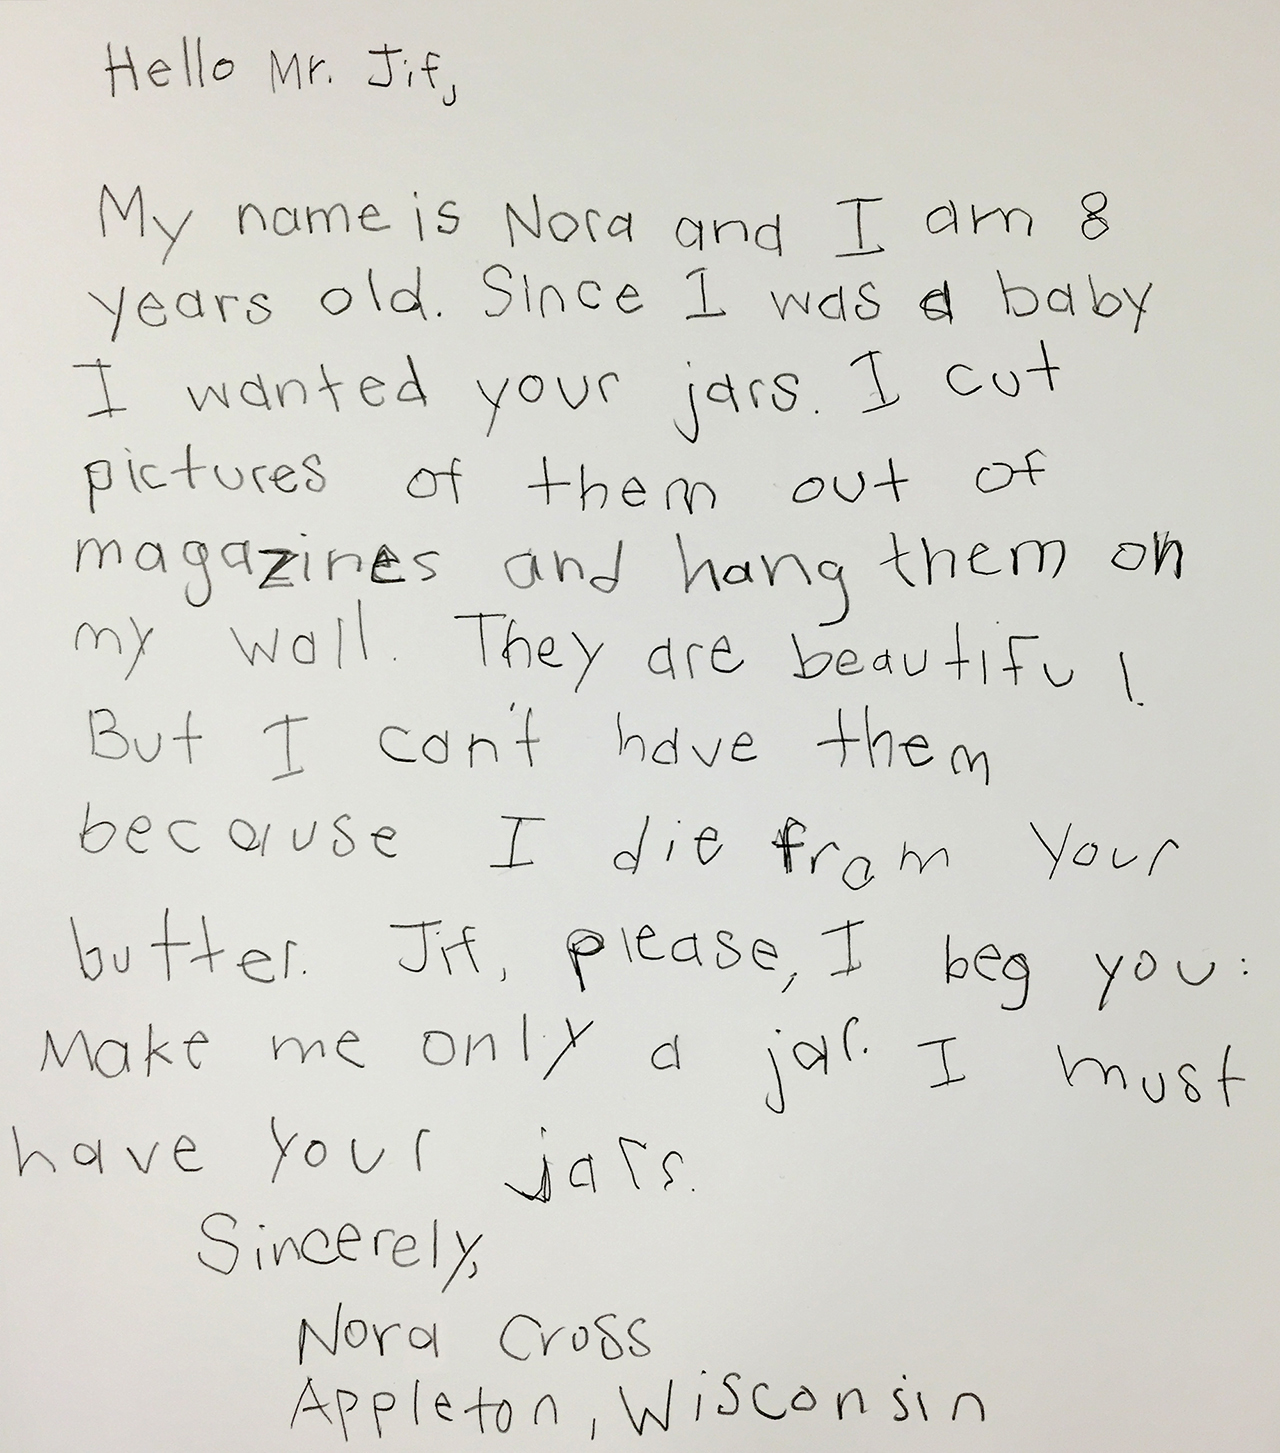 Hello Mr. Jif,
My name is Nora and I am 8
years old. Since I was a baby
I wanted your jars. I cut
pictures of them out of
magazines and hang them on
my wall. They are beautiful.
But I can't have them
because I die from your
butter. Jif, please, I beg you:
Make me only a jar. I must
have your jars.
Sincerely,
Nora Cross
Appleton, Wisconsin